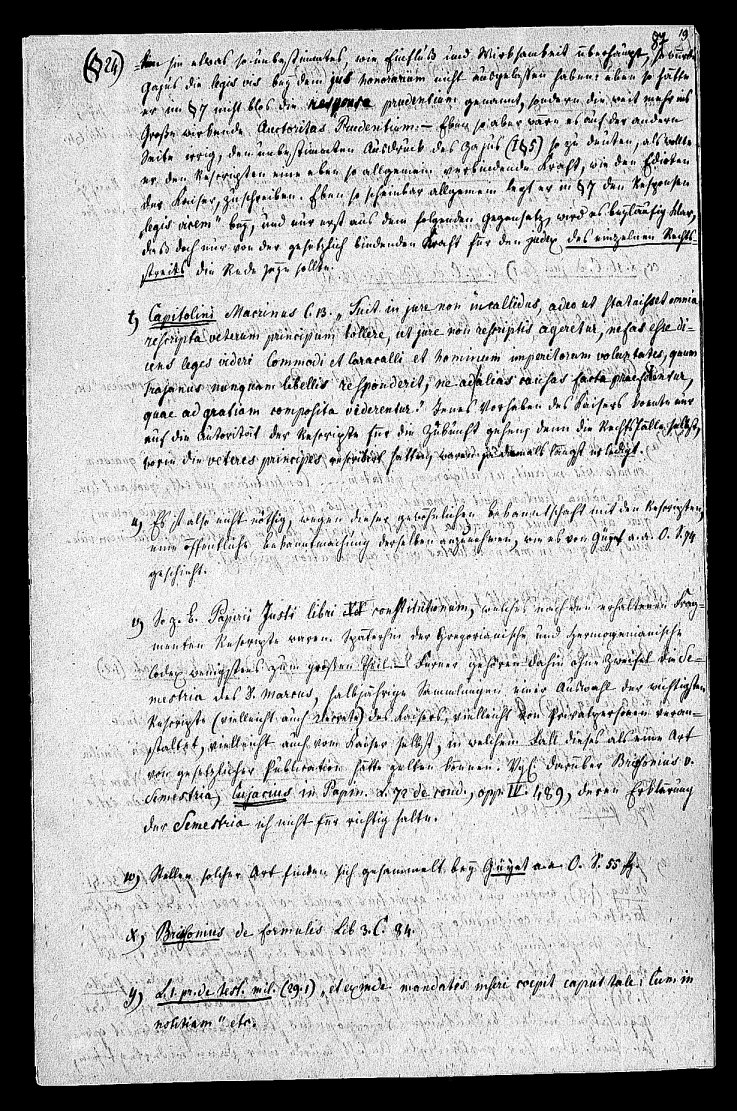 87 19
(§ 24)
sie etwas so unbestimmtes, wie Einfluß und Wirksamkeit überhaupt, so würde
Gajus die legis vis bey dem jus honorarium nicht ausgelassen haben: eben so hätte
er im § 7 nicht blos die responsa prudentium genannt, sondern die weit mehr ins
Große wirkende Auctoritas Prudentium. — Eben so aber wäre es auf der andern
Seite irrig, den unbestimmten Ausdruck des Gajus (I § 5) so zu deuten, als wollte
er den Rescripten eine eben so allgemein verbindende Kraft, wie den Edicten
der Kaiser, zuschreiben. Eben so scheinbar allgemein legt er in § 7 den Responsen
„legis vicem" bey, und nur erst aus dem folgenden Gegensatz wird es beyläufig klar,
daß doch nur von der gesetzlich bindenden Kraft für den judex des einzelnen Rechts-
streits die Rede seyn sollte.
t) Capitolini Macrinus C. 13. „Fuit in jure non incallidus, adeo ut statuisset omnia
rescripta veterum principum tollere, ut jure non rescriptis ageretur, nefas esse di-
cens leges videri Commodi et Caracalli et hominum imperitorum voluntates, quum
Trajanus nunquam libellis responderit, ne ad alias causas facta praeferrentur,
quae ad gratiam composita viderentur." Jenes Vorhaben des Kaisers konnte nur
auf die Autorität der Rescripte für die Zukunft gehen, denn die Rechtsfälle selbst,
worin die veteres principes rescribirt hatten, waren ja damals längst erledigt.
u) Es ist also nicht nöthig, wegen dieser gewöhnlichen Bekanntschaft mit den Rescripten,
eine öffentliche Bekanntmachung derselben anzunehmen, wie es von Guyet a. a. O. S. 74
geschieht.
v) So z. B. Papirii Justi libri XX constitutionum, welches nach den erhaltenen Frag-
menten Rescripte waren. Späterhin der Gregorianische und Hermogenianische
Codex wenigstens zum großen Theil. — Ferner gehören dahin ohne Zweifel die Se-
mestria des D. Marcus, halbjährige Sammlungen einer Auswahl der wichtigsten
Rescripte (vielleicht auch Decrete) des Kaisers, vielleicht von Privatpersonen veran-
staltet, vielleicht auch vom Kaiser selbst, in welchem Fall dieses als eine Art
von gesetzlicher Publication hätte gelten können. Vgl. darüber Brissonius v.
Semestria, Cujacius in Papin. L. 72 de cond., opp. IV. 489, deren Erklärung
der Semestria ich nicht für richtig halte.
w) Stellen solcher Art finden sich gesammelt bey Guyet a. a. O. S. 55 fg.
x) Brissonius de formulis Lib 3. C. 84.
y) L. 1. pr. de test. mil. (29. 1) „et exinde mandatis inseri coepit caput tale: Cum in
notitiam" etc.